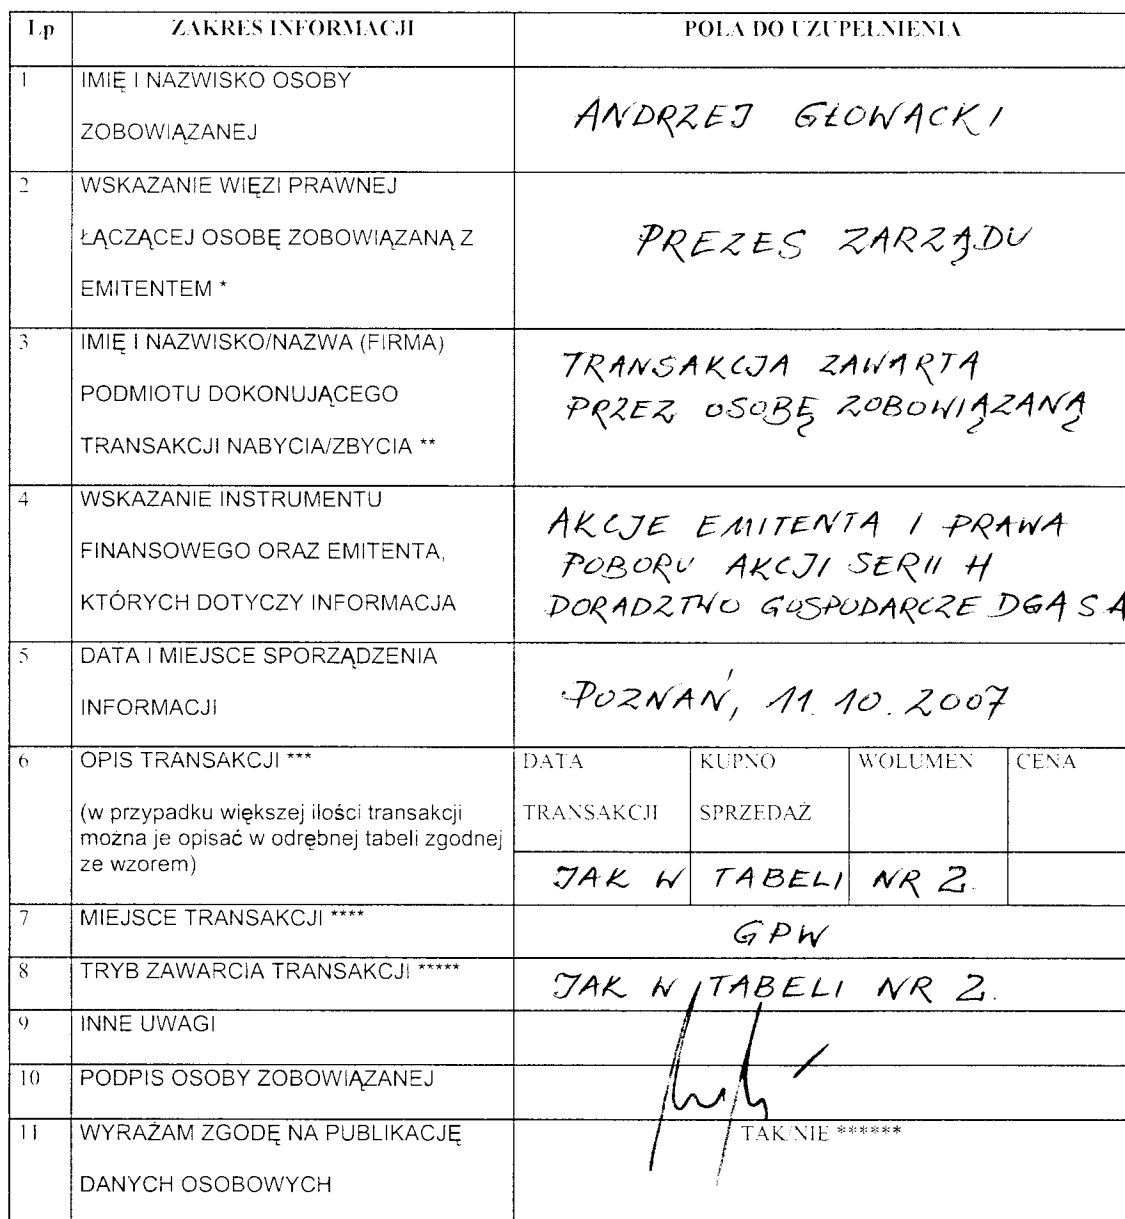 Lp ZAKRES INFORMACJI POLA DO UZUPEŁNIENIA
1 IMIĘ I NAZWISKO OSOBY
ZOBOWIĄZANEJ
ANDRZEJ GŁOWACKI
2 WSKAZANIE WIĘZI PRAWNEJ
ŁĄCZĄCEJ OSOBĘ ZOBOWIĄZANĄ Z
EMITENTEM *
PREZES ZARZĄDU
3 IMIĘ I NAZWISKO/NAZWA (FIRMA)
PODMIOTU DOKONUJĄCEGO
TRANSAKCJI NABYCIA/ZBYCIA **
TRANSAKCJA ZAWARTA
PRZEZ OSOBĘ ZOBOWIĄZANĄ
4 WSKAZANIE INSTRUMENTU
FINANSOWEGO ORAZ EMITENTA,
KTÓRYCH DOTYCZY INFORMACJA
AKCJE EMITENTA I PRAWA
POBORU AKCJI SERII H
DORADZTWO GOSPODARCZE DGA SA
5 DATA I MIEJSCE SPORZĄDZENIA
INFORMACJI
POZNAŃ, 11.10.2007
6 OPIS TRANSAKCJI ***
(w przypadku większej ilości transakcji
można je opisać w odrębnej tabeli zgodnej
ze wzorem)
DATA KUPNO WOLUMEN CENA
TRANSAKCJI SPRZEDAŻ
JAK W TABELI NR 2.
7 MIEJSCE TRANSAKCJI ****
GPW
8 TRYB ZAWARCIA TRANSAKCJI *****
JAK W TABELI NR 2.
9 INNE UWAGI
10 PODPIS OSOBY ZOBOWIĄZANEJ
11 WYRAŻAM ZGODĘ NA PUBLIKACJĘ
DANYCH OSOBOWYCH
TAK/NIE ******